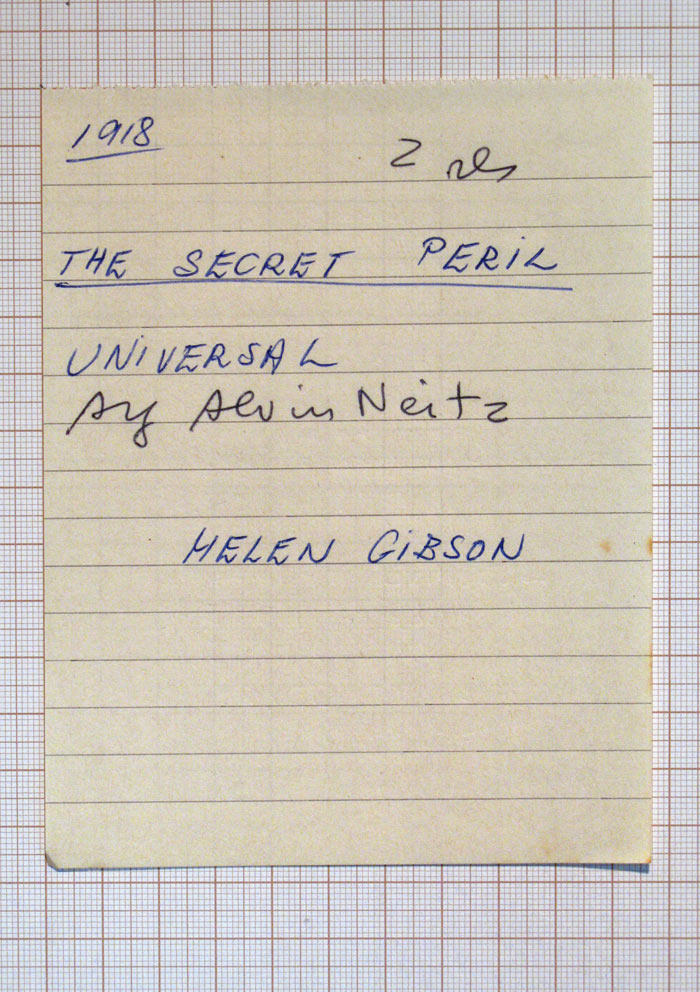 1918
2 rls
THE SECRET PERIL
UNIVERSAL
Alvin Neitz
HELEN GIBSON